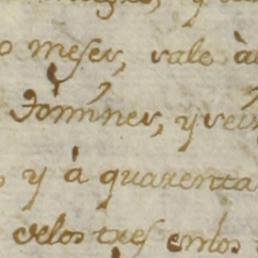 meses, vale à
Jòmínes, y vei
y à quarenta
velos tres enlos